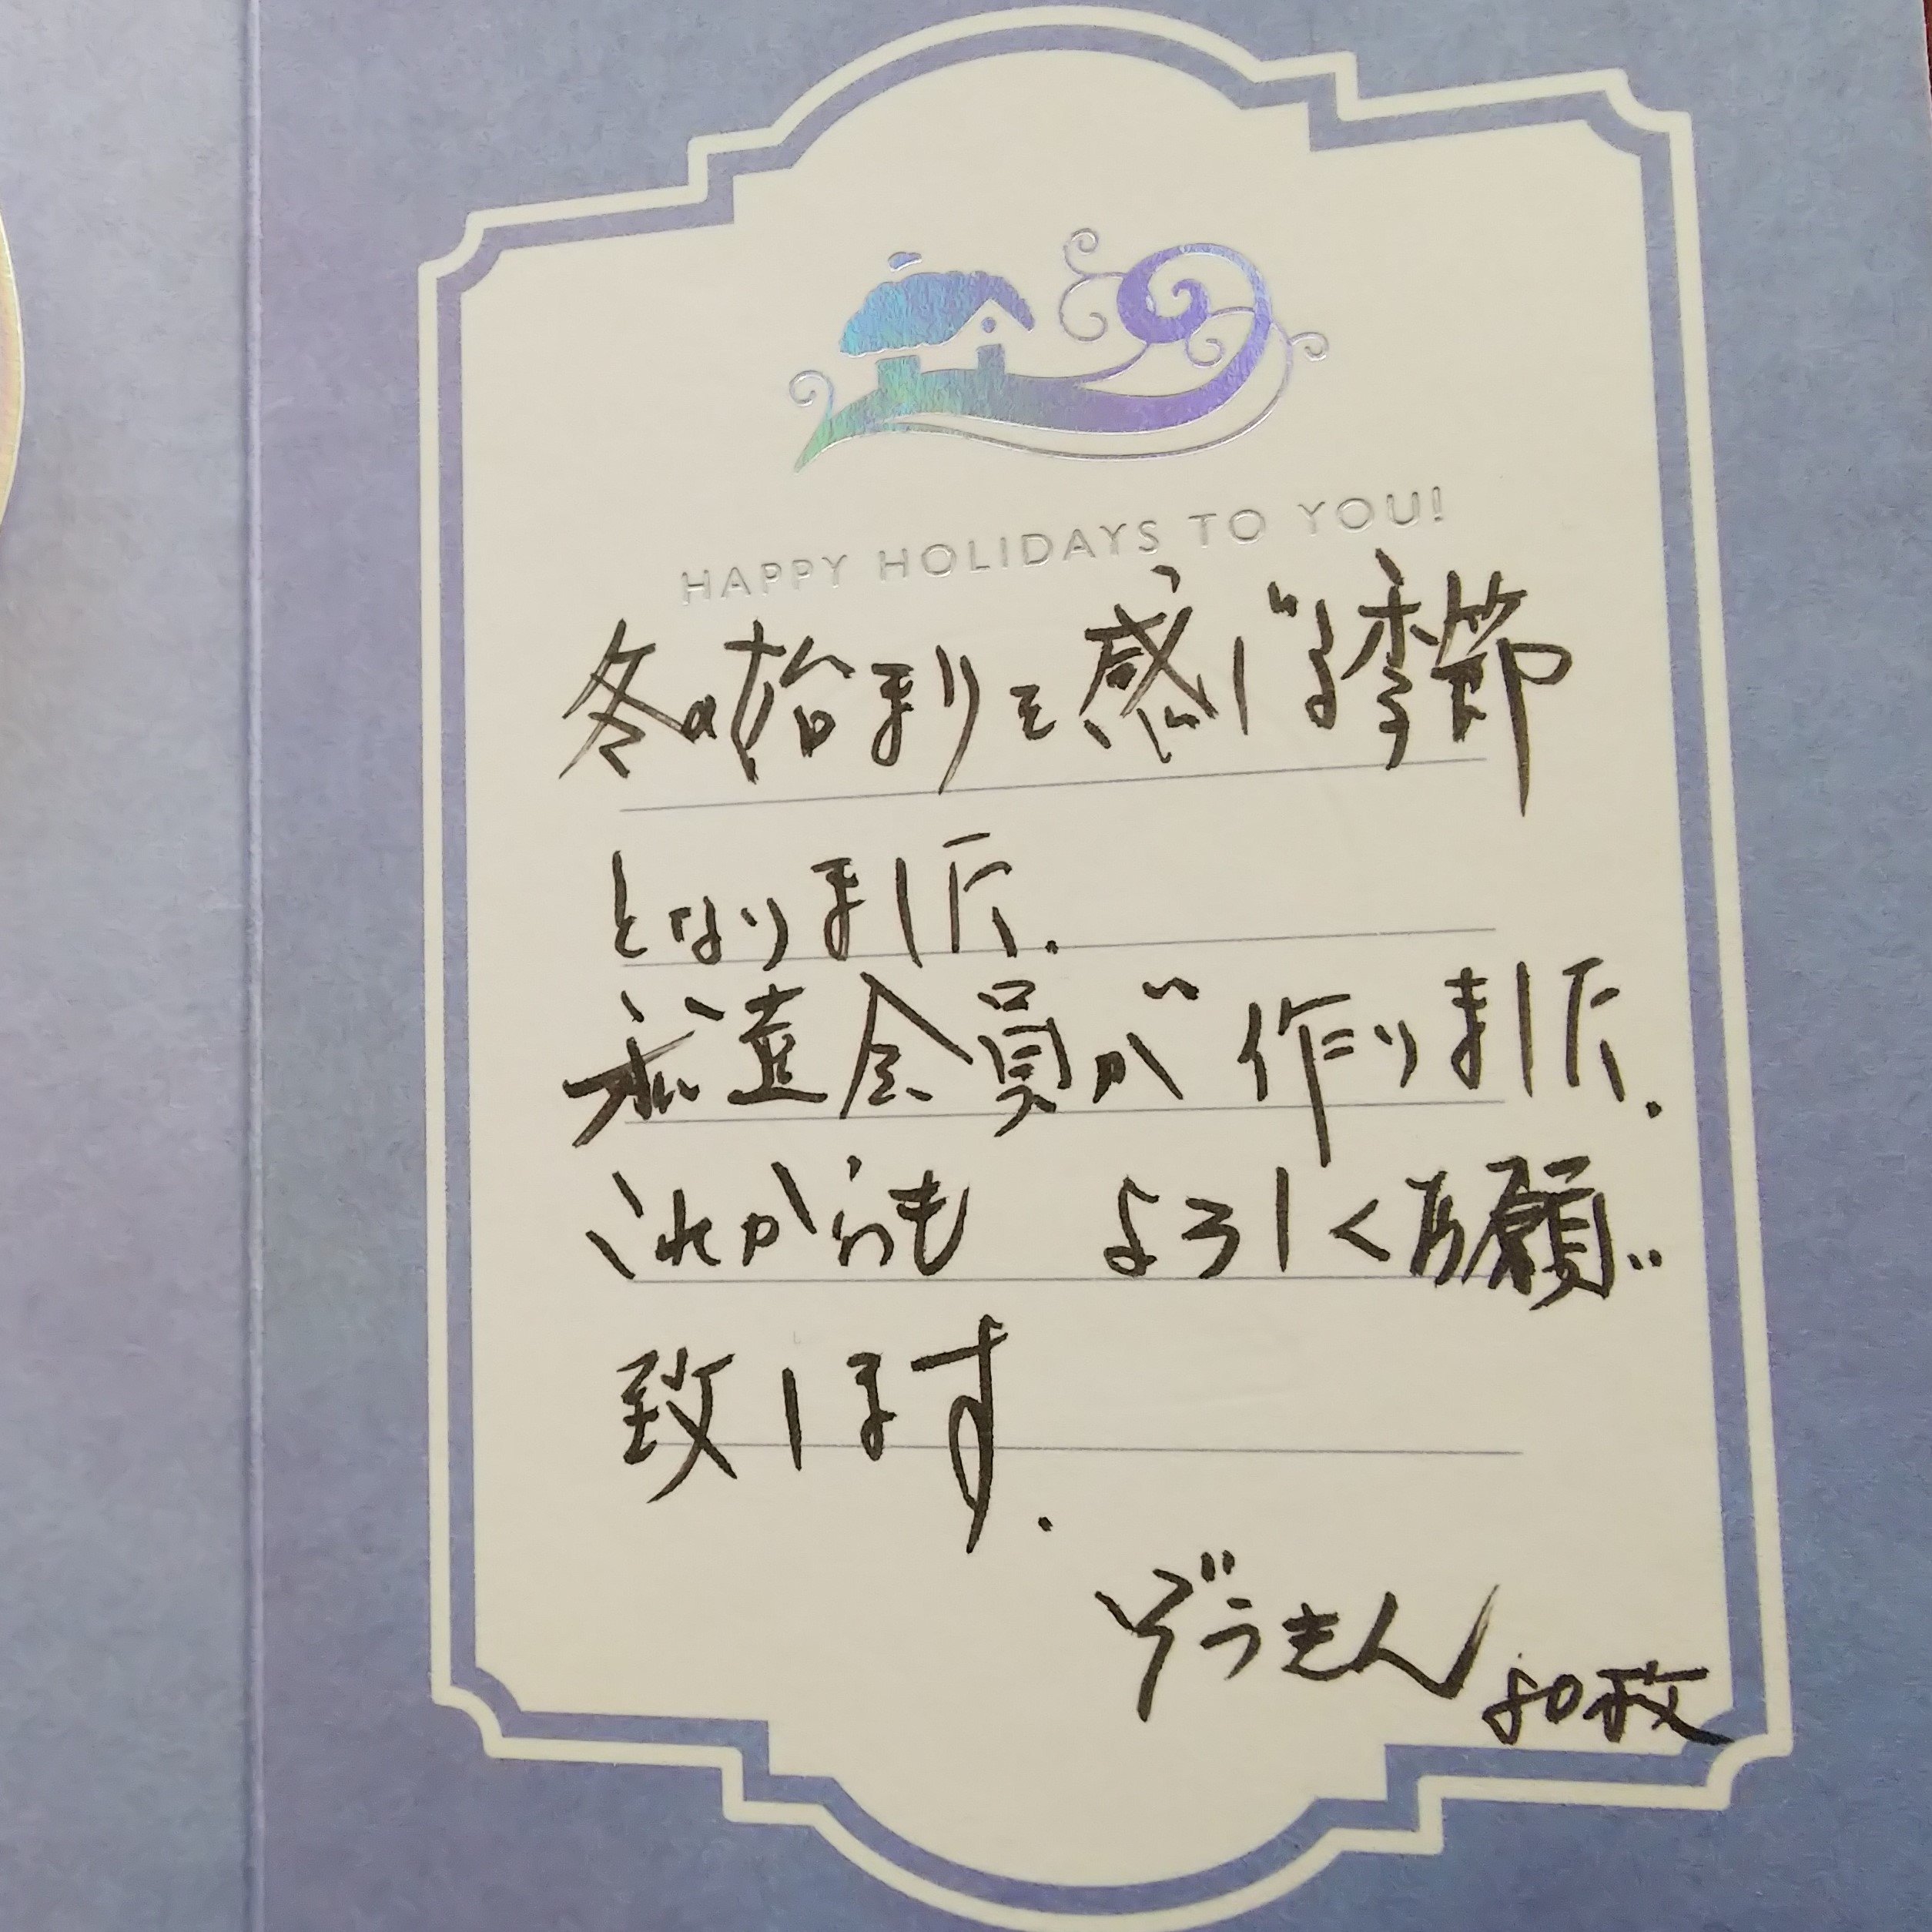 HAPPY HOLIDAYS TO YOU!
冬の始まりを感じる季節
となりました.
私達会員が作りました.
これからも よろしくお願い
致します.
ぞうきん 80枚